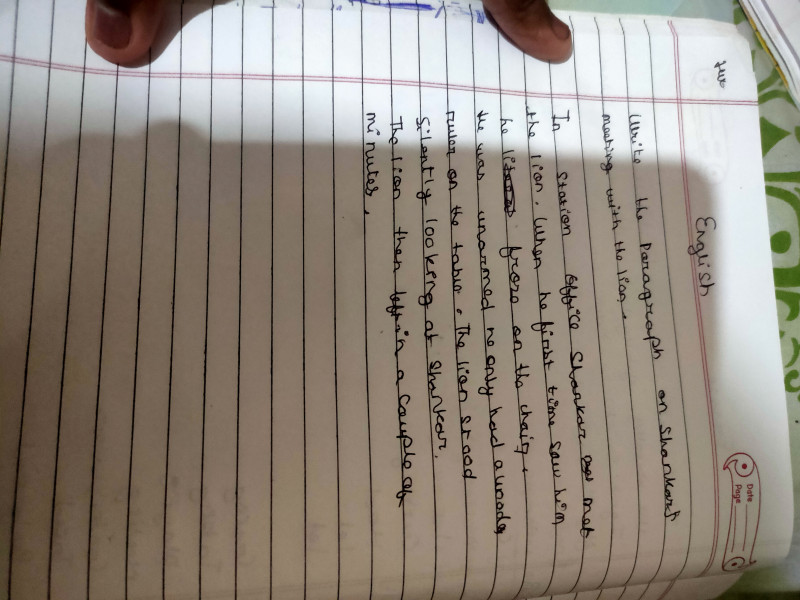 Date
Page
English
Write the Paragraph on Shankar's
meeting with the lion.
In station office Shankar met
the lion. When he first time saw him
he froze on the chair.
He was unarmed he only had a woode
ruler on the table. The lion stood
Silently looking at Shankar.
The lion then left in a couple of
minutes.